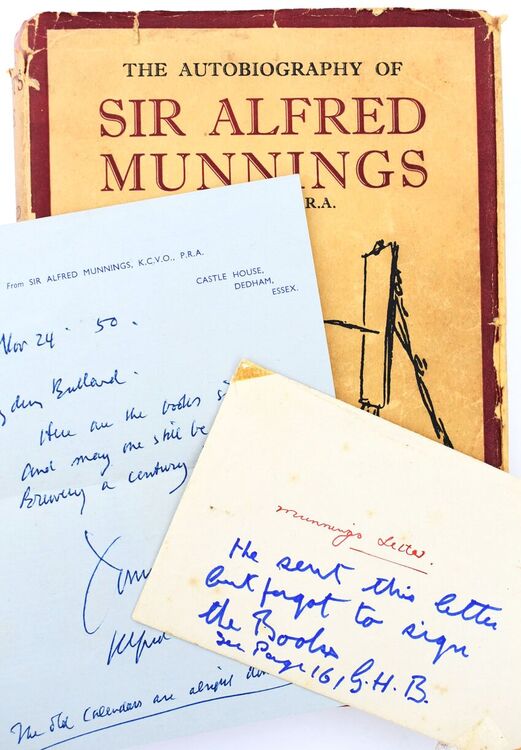 THE AUTOBIOGRAPHY OF
SIR ALFRED
MUNNINGS
R.A.
From SIR ALFRED MUNNINGS, K.C.V.O., P.R.A.
CASTLE HOUSE,
DEDHAM,
ESSEX.
Nov 24 . 50 .
Bullard .
Here are the books
And may one still be
Brewery a century
Alfred
The old Calendars are alright
Munnings Letter.
He sent this letter
but forgot to sign
the Books
See Page 161 G.H.B.